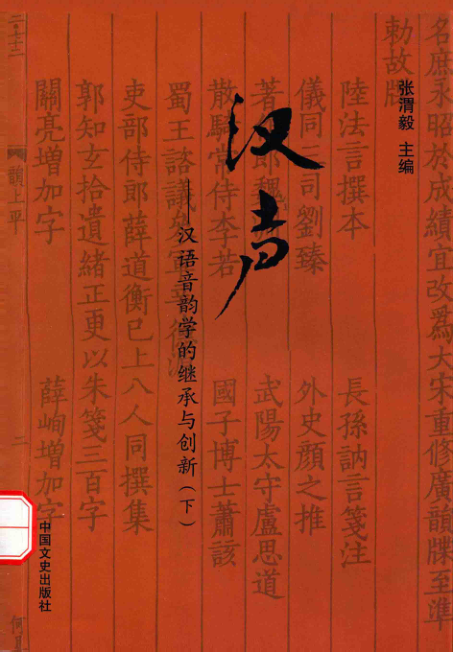 汉声
——汉语音韵学的继承与创新（下）
张渭毅 主编
中国文史出版社
名庶永昭於成績宜改爲大宋重修廣韻牒至準
勅故牒
陸法言撰本 長孫訥言箋注
儀同三司劉臻 外史顏之推
著 郎魏 武陽太守盧思道
散騎常侍李若 國子博士蕭該
蜀王諮議
吏部侍郎薛道衡已上八人同撰集
郭知玄拾遺緒正更以朱箋三百字
關亮增加字 薛峋增加字
韻上平 二